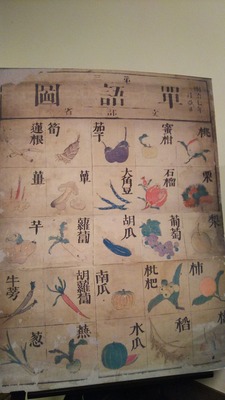 第
單語圖
文部省
桃
蜜柑
茄子
筍
蓮根
栗
石榴
大角豆
蕈
薑
梨
葡萄
胡瓜
蘿蔔
芋
柿
枇杷
南瓜
胡蘿蔔
牛蒡
稻
水瓜
蕪
葱